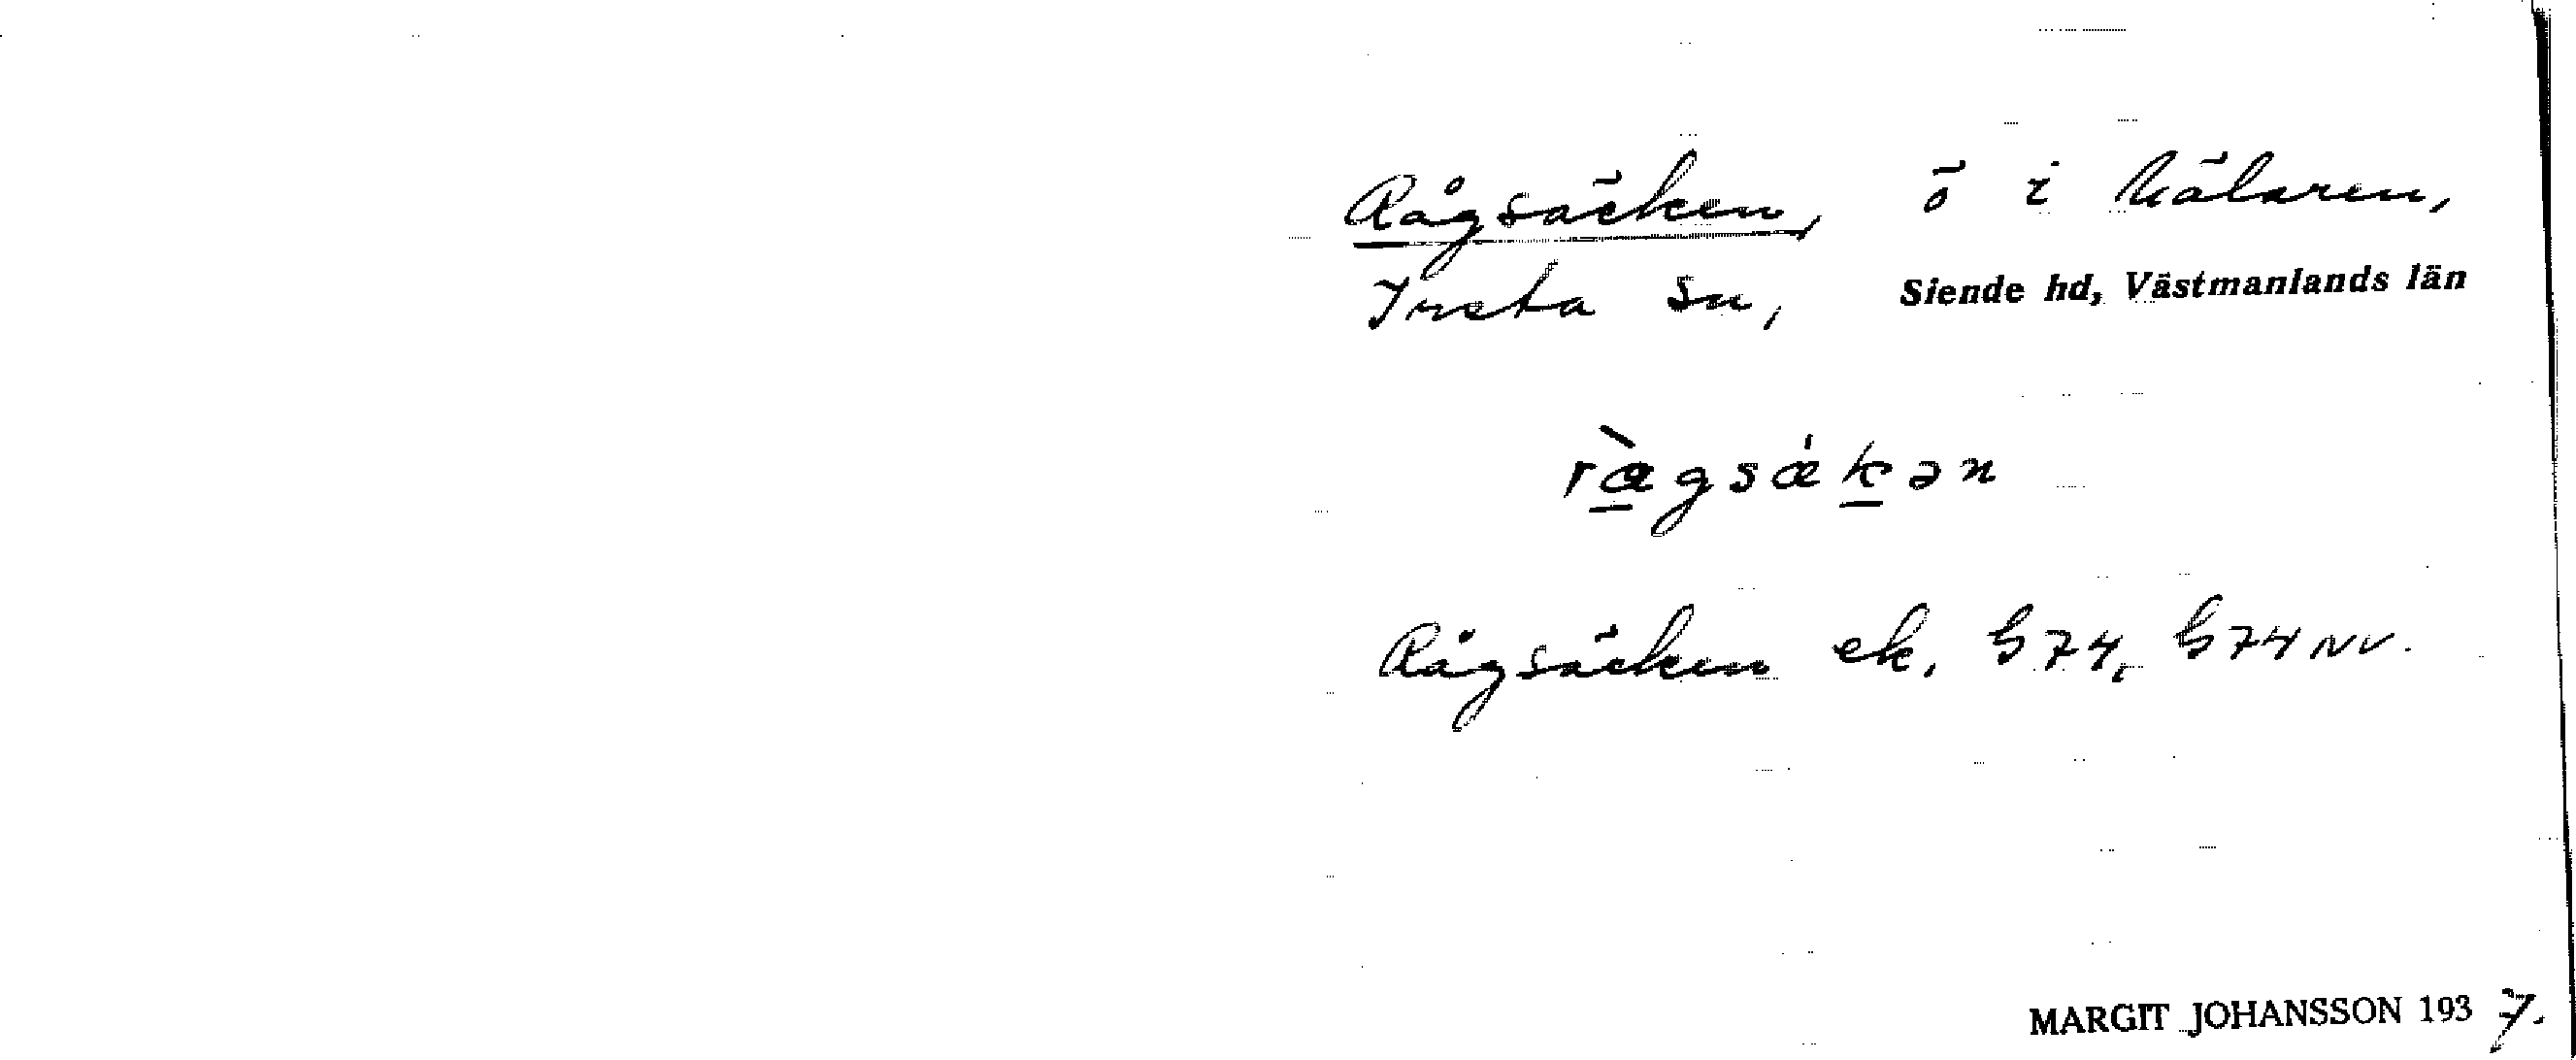 Rågsäcken, ö i Mälaren,
Irsta sn, Siende hd, Västmanlands län
ràgsǽkən
Rågsäcken ek. G74, G74NV.
MARGIT JOHANSSON 1937.